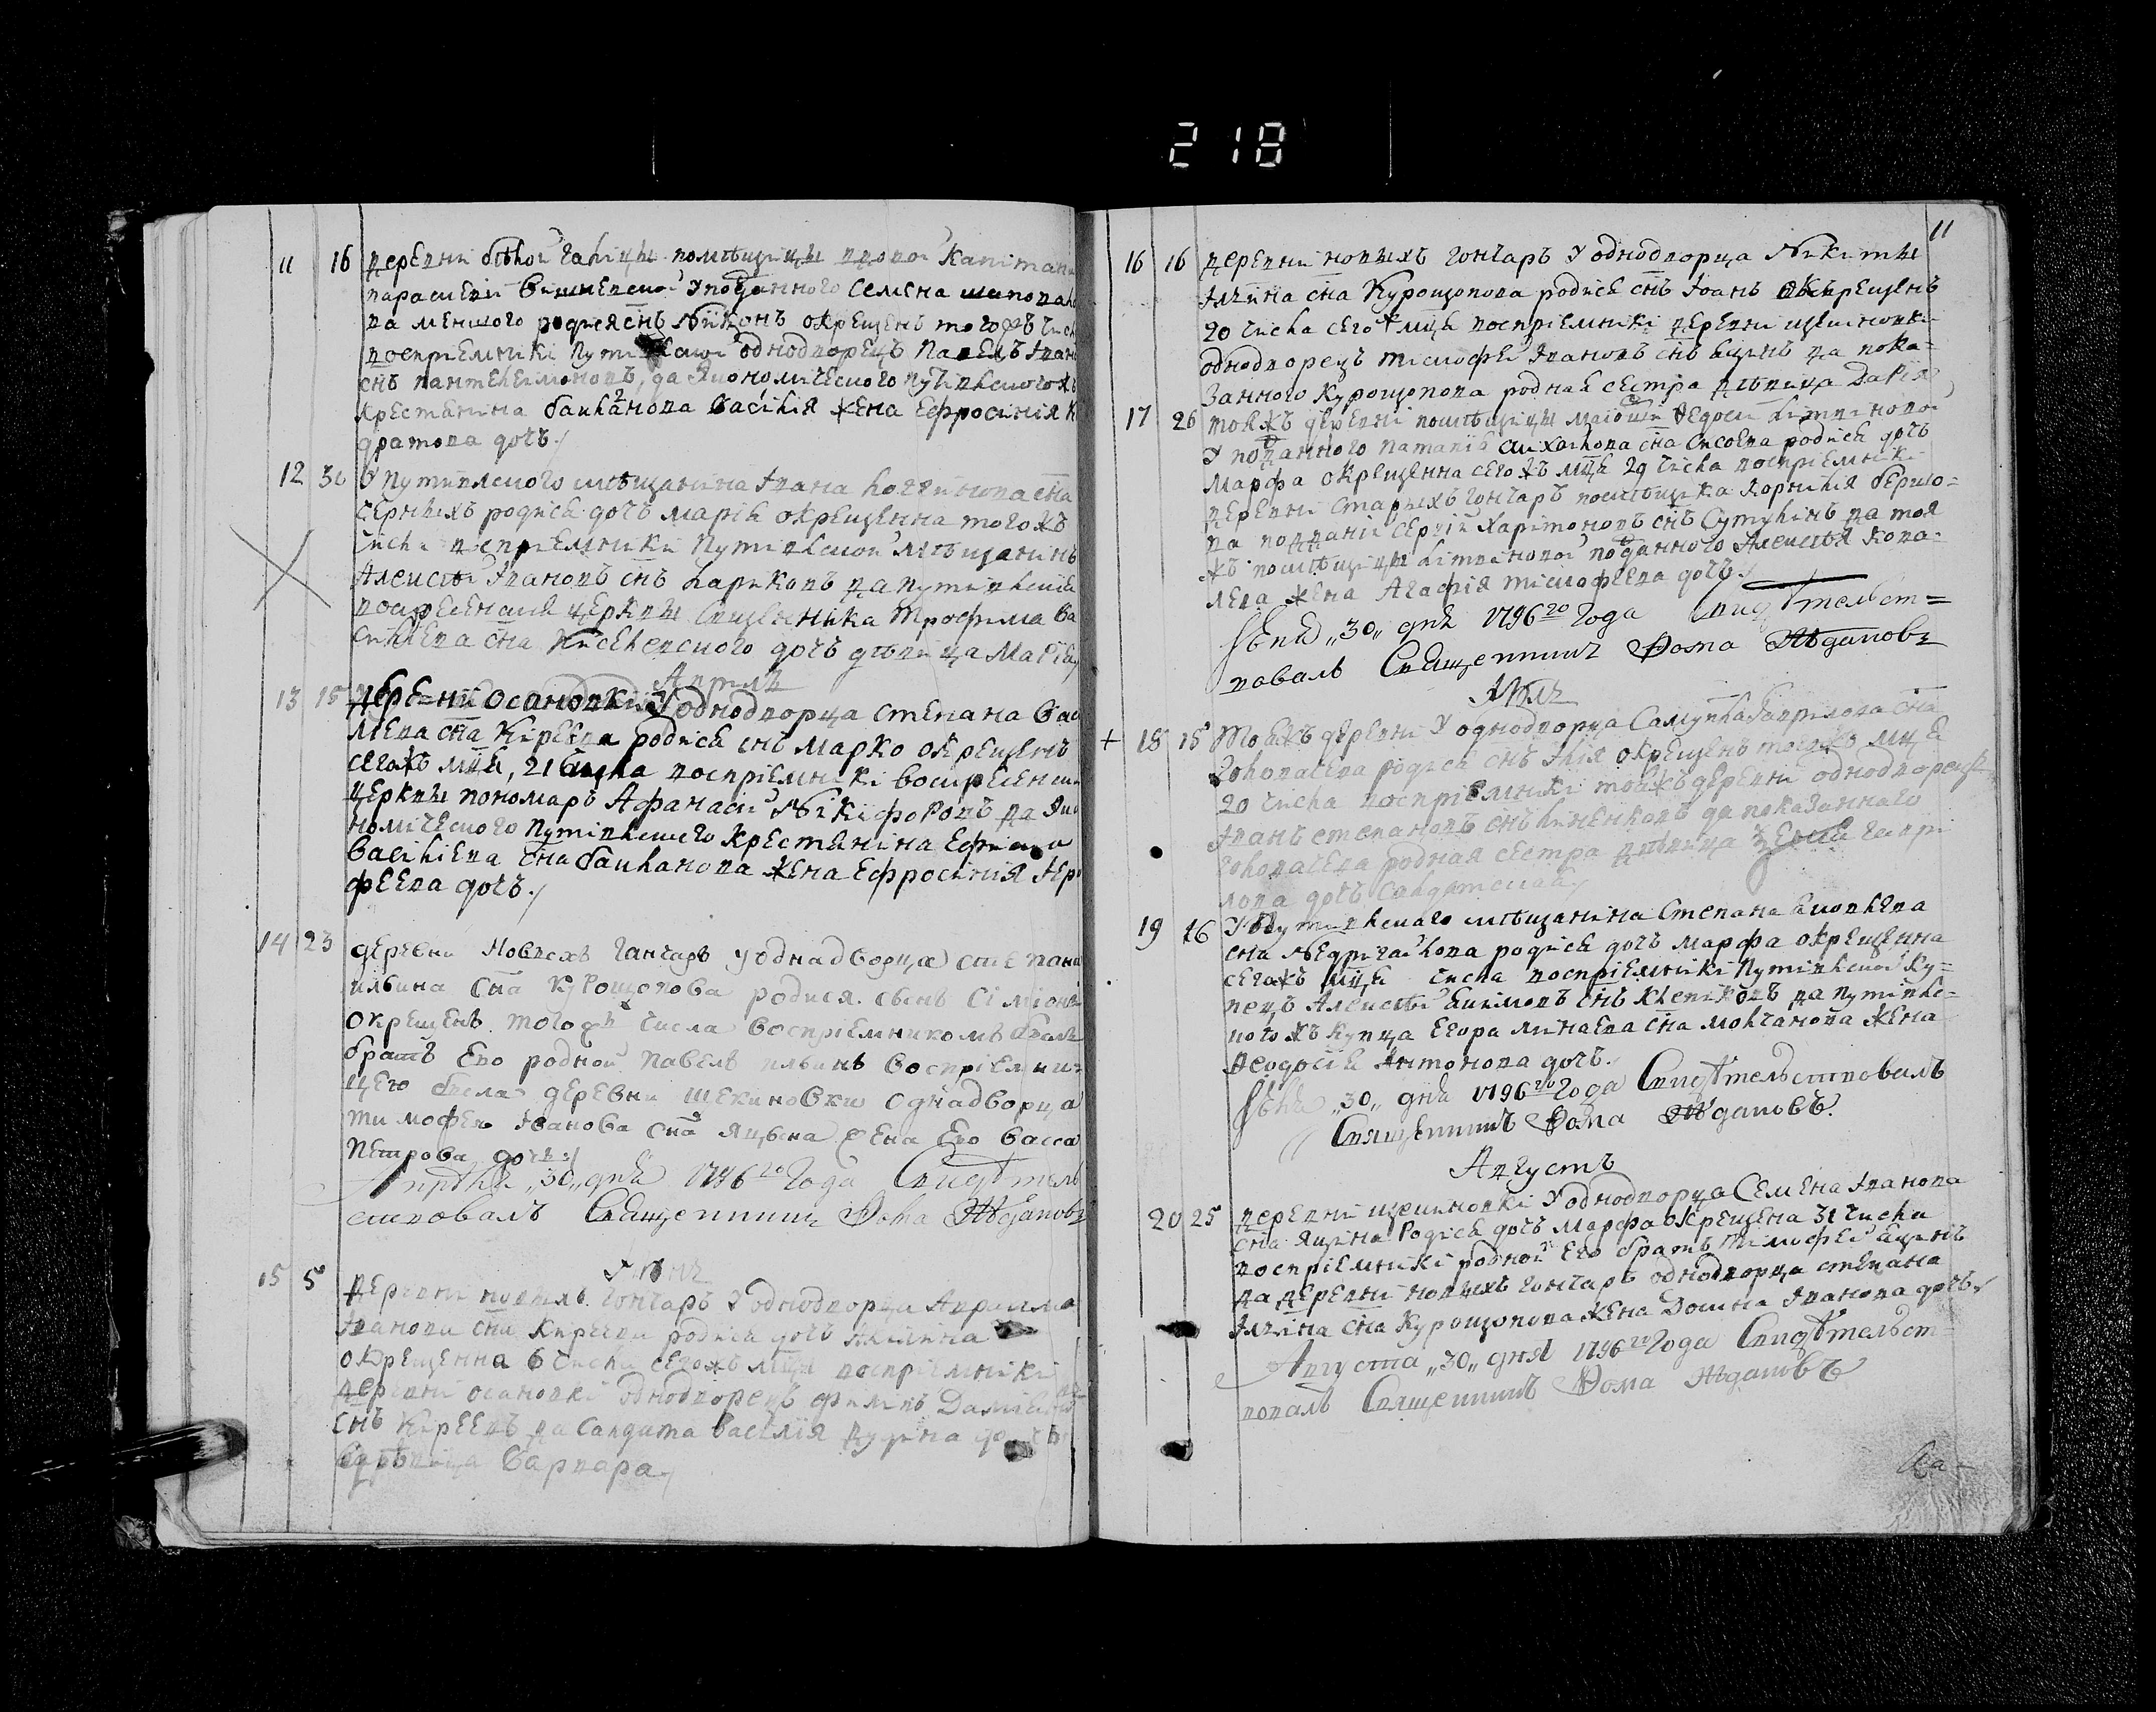 218
11 16 деревни белой галицы помѣщицы вдовой капитан
параскеви вишневской У подданного Семена шаповал
ва меншого родися снъ Никонъ окрещенъ того жъ числ
воспріемники путивлской однодворецъ Павелъ Іван
снъ пантелеймоновъ, да Экономического путивлского ж
крестянина баклановa Василія жена Ефросинія К
дратова дочь
12 30 У путивлского мѣщанина Івана логвинова сна
черныхъ родися дочь марія окрещенна того жъ
числа воспріемники путивлской мѣщанинъ
Алексѣй Івановъ снъ лариковъ да путивлския
воскресенския церкви священника Трофима Ва
силиева сна Киселевского дочь дѣвица Марія
Апрель
13 15 деревни осановки У однодворца степана Васи
лиева сна Киреева родися снъ марко окрещенъ
сегожъ мца, 21 числа воспріемники воскресенски
церкви пономарь Афанасій Никифоровъ да Эко
номического путивлского крестянина Ефима
Василиева сна бакланова жена Ефросинія Іер
феева дочь
14 23 деревни Новыхъ Ганчаръ у однадворца степана
ильина сна курощопова родися сынъ Сімеонъ
окрещенъ того жъ числа воспріемникомъ былъ
братъ Ево родной Павелъ ильинъ воспріемни
цею была деревни щекиновки однадворца
тимофея Іванова сна яцына жена Ево васса
петрова дочь
Апрѣля „30„ дня 1796го года Свидѣтель
ствовалъ Священникъ Фома Ждановъ
Іюнь
15 5 деревни новыхъ гончаръ У однодворца Авраама
Іванова сна Киреева родися дочь Акилина
окрещенна 6 числа сегожъ мца воспріемники
деревни осановки однодворецъ филипъ Даміановъ
снъ Киреевъ да салдата василія дудина дочь
дѣвица варвара
11
16 16 деревни новыхъ гончаръ У однодворца Никиты
Ілина сна Курощопова родися снъ Іоанъ окрещенъ
20 числа сего ж мца воспріемники деревни щекиновки
однодворецъ тимофей Івановъ снъ яцынъ да пока-
занного курощопова родная сестра дѣвица Дарія
17 26 тойжъ деревни помѣщицы маіорши Ѳедоси литвиновой
У подданного сна сисоева родися дочь
Марфа окрещенна сегожъ мца 29 числа воспріемники
деревни старыхъ гончаръ помѣщика корнилія берло-
ва подданій сергій харитоновъ снъ Сутулинъ да тоя
жъ помѣщицы литвиновой подданного Алексѣя кова-
лева жена Агафія тимофеева дочь
Іюня „30„ дня 1796го года Свидѣтельст=
вовалъ Священникъ Фома Ждановъ
Іюль
+ 18 15 Тойжъ деревни У однодворца Самуила гаврилова сна
Головачева родися снъ Ілія окрещенъ тогожъ мца
20 числа воспріемники тойжъ деревни однодворецъ
Іванъ степановъ снъ линенковъ да показаннаго
головачева родная сестра дѣвица гаври
лова дочь салдатская
19 16 У путивлскаго мѣщанина Степана яковлева
сна недригайлова родися дочь марфа окрещенна
сегожъ мца числа воспріемники путивлской ку=
пецъ Алексѣй екимовъ снъ клепиковъ да путивлс-
кого жъ купца Егора минаева сна молчанова жена
Ѳеодосія Антонова дочь.
Іюля „30„ дня 1796го года Свидѣтельствовалъ
Священникъ Фома Ждановъ.
Августъ
20 25 деревни щекиновки У однодворца Семена Іванова
сна яцина родися дочь марфа окрещена 31 числа
воспріемники родной Ево братъ тимофей яцинъ
да деревни новыхъ гончаръ однодворца степана
Ілина сна курощопова жена Домна Іванова дочь
Августа „30„ дня 1796го года Свидѣтельст-
вовалъ Священникъ Фома Ждановъ